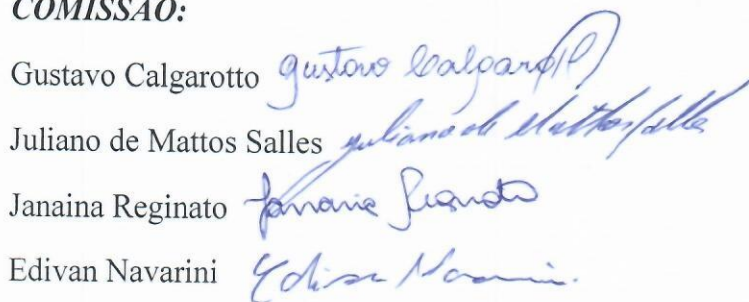 COMISSÃO:
Gustavo Calgarotto Gustavo Calgarotto
Juliano de Mattos Salles Juliano de Mattos Salles
Janaina Reginato Janaina Reginato
Edivan Navarini Edivan Navarini